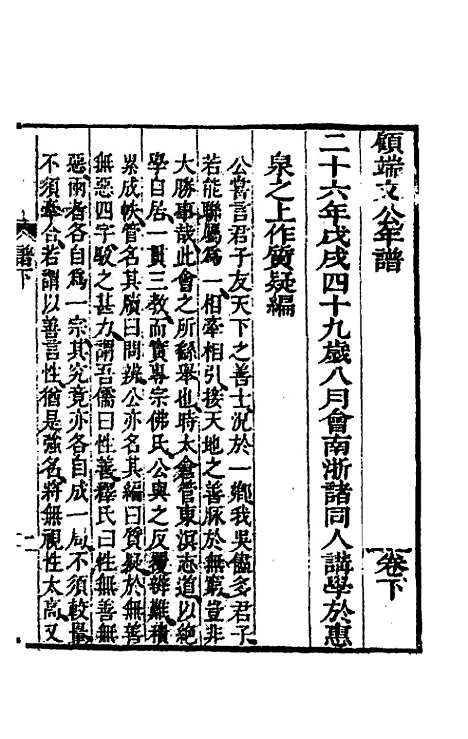 顧端文公年譜 卷下
二十六年戊戌四十九歲八月會南浙諸同人講學於惠
泉之上作質疑編
公嘗言君子友天下之善士況於一鄉我吳儘多君子
若能聯屬爲一相牽相引接天地之善脈於無窮豈非
大勝事哉此會之所繇舉也時太倉管東溟志道以絶
學自居一貫三教而實專宗佛氏公與之反覆辨難積
累成帙管名其牘曰問辨公亦名其編曰質疑於無善
無惡四字駁之甚力謂吾儒曰性善釋氏曰性無善無
惡兩者各自爲一宗其究竟亦各自成一局不須較量
不須牽合若謂以善言性猶是強名將無視性太高又
譜下
二